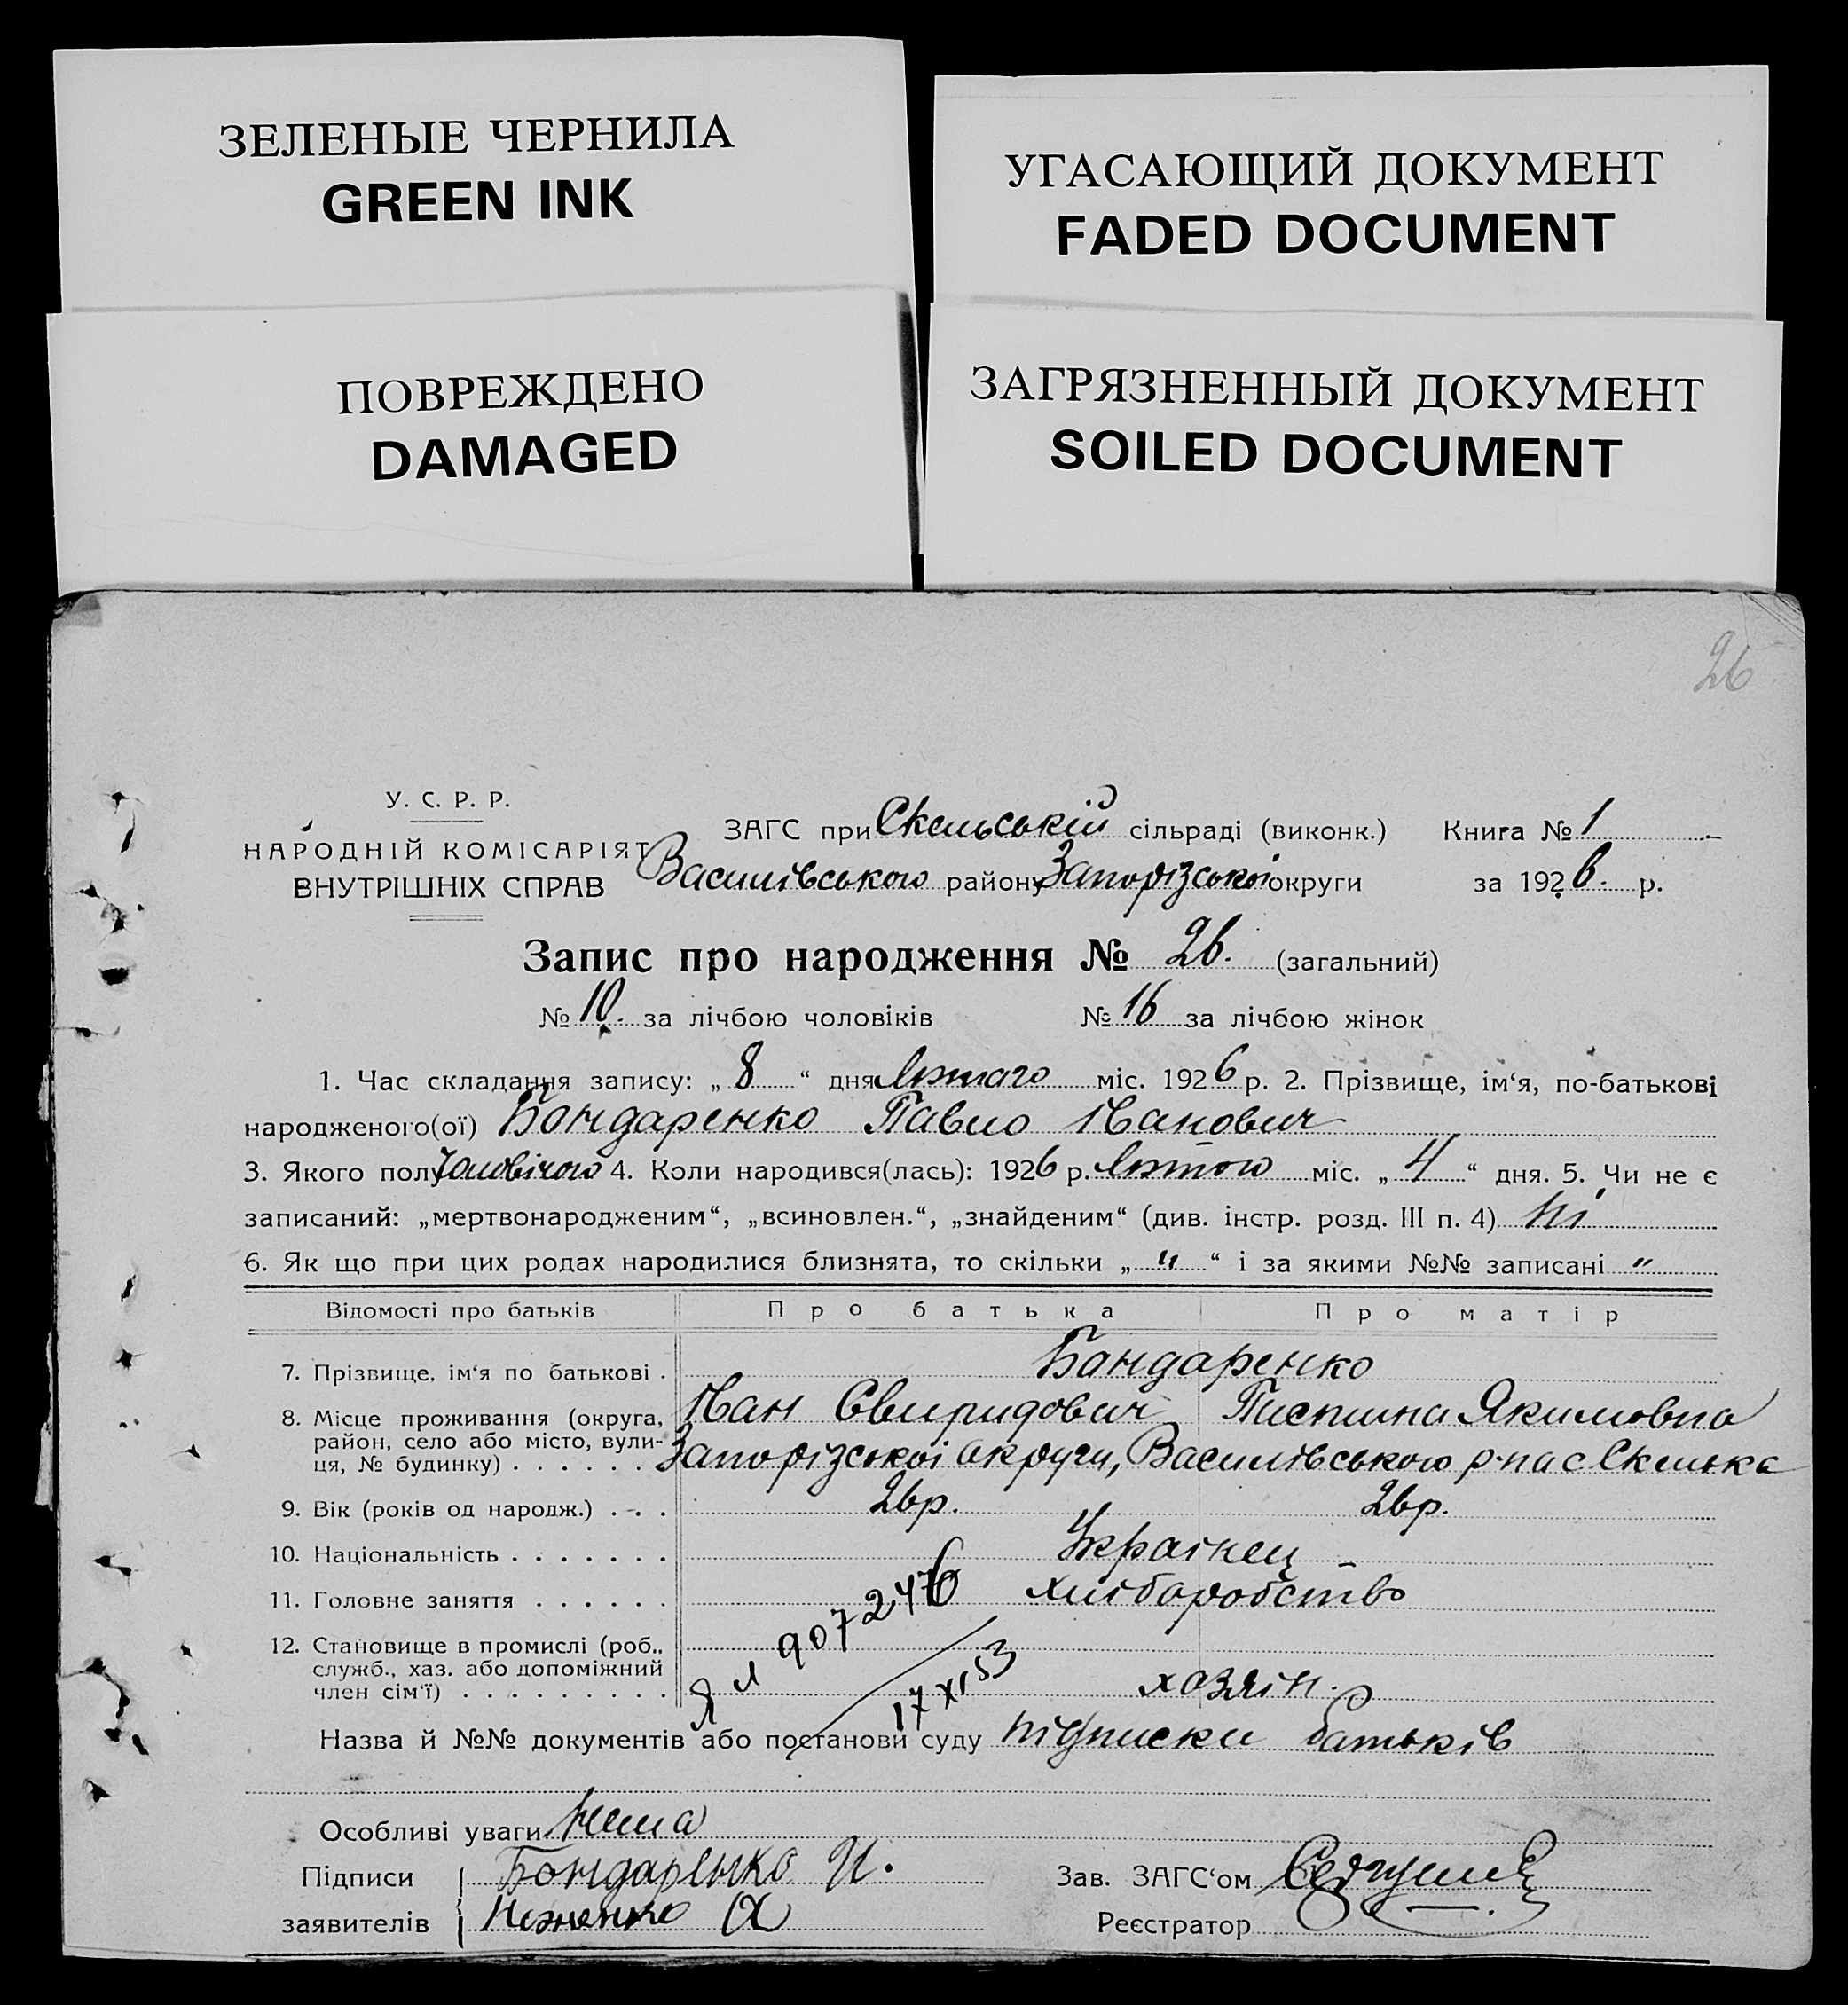 ЗЕЛЕНЫЕ ЧЕРНИЛА
GREEN INK
УГАСАЮЩИЙ ДОКУМЕНТ
FADED DOCUMENT
ПОВРЕЖДЕНО
DAMAGED
ЗАГРЯЗНЕННЫЙ ДОКУМЕНТ
SOILED DOCUMENT
26
У. С. Р. Р.
НАРОДНІЙ КОМІСАРІЯТ
ВНУТРІШНІХ СПРАВ
ЗАГС при Скельській сільраді (виконк.) Книга № 1
Василівського району Запорізської округи за 1926. р.
Запис про народження № 26. (загальний)
№ 10. за лічбою чоловіків № 16 за лічбою жінок
1. Час складання запису: „ 8 “ дня лютаго міс. 1926 р. 2. Прізвище, ім‘я, по-батькові
народженого(ої) Бондаренко Павло Іванович
3. Якого полу чоловічого 4. Коли народився(лась): 1926 р. лютого міс. „ 4 “ дня. 5. Чи не є
записаний: „мертвонародженим“, „всиновлен.“, „знайденим“ (див. інстр. розд. III п. 4) Ні
6. Як що при цих родах народилися близнята, то скільки „ " “ і за якими №№ записані "
Відомості про батьків Про батька Про матір
7. Прізвище, ім‘я по батькові . Бондаренко
Іван Свиридович Якимовна
8. Місце проживання (округа,
район, село або місто, вули-
ця, № будинку) . . . . . . Запорізської округи, Василівського р-на с Скелька
9. Вік (років од народж.) . . . 26р. 26р.
10. Національність . . . . . . . Українец –
11. Головне заняття . . . . . . хліборобство
12. Становище в промислі (роб.,
служб., хаз. або допоміжний
член сім‘ї) . . . . . . . . . хозяін.
907246
17 XI 53
Назва й №№ документів або постанови суду підписки батьків
Особливі уваги Нема
Підписи Бондаренко И.
заявителів
Зав. ЗАГС‘ом
Реєстратор